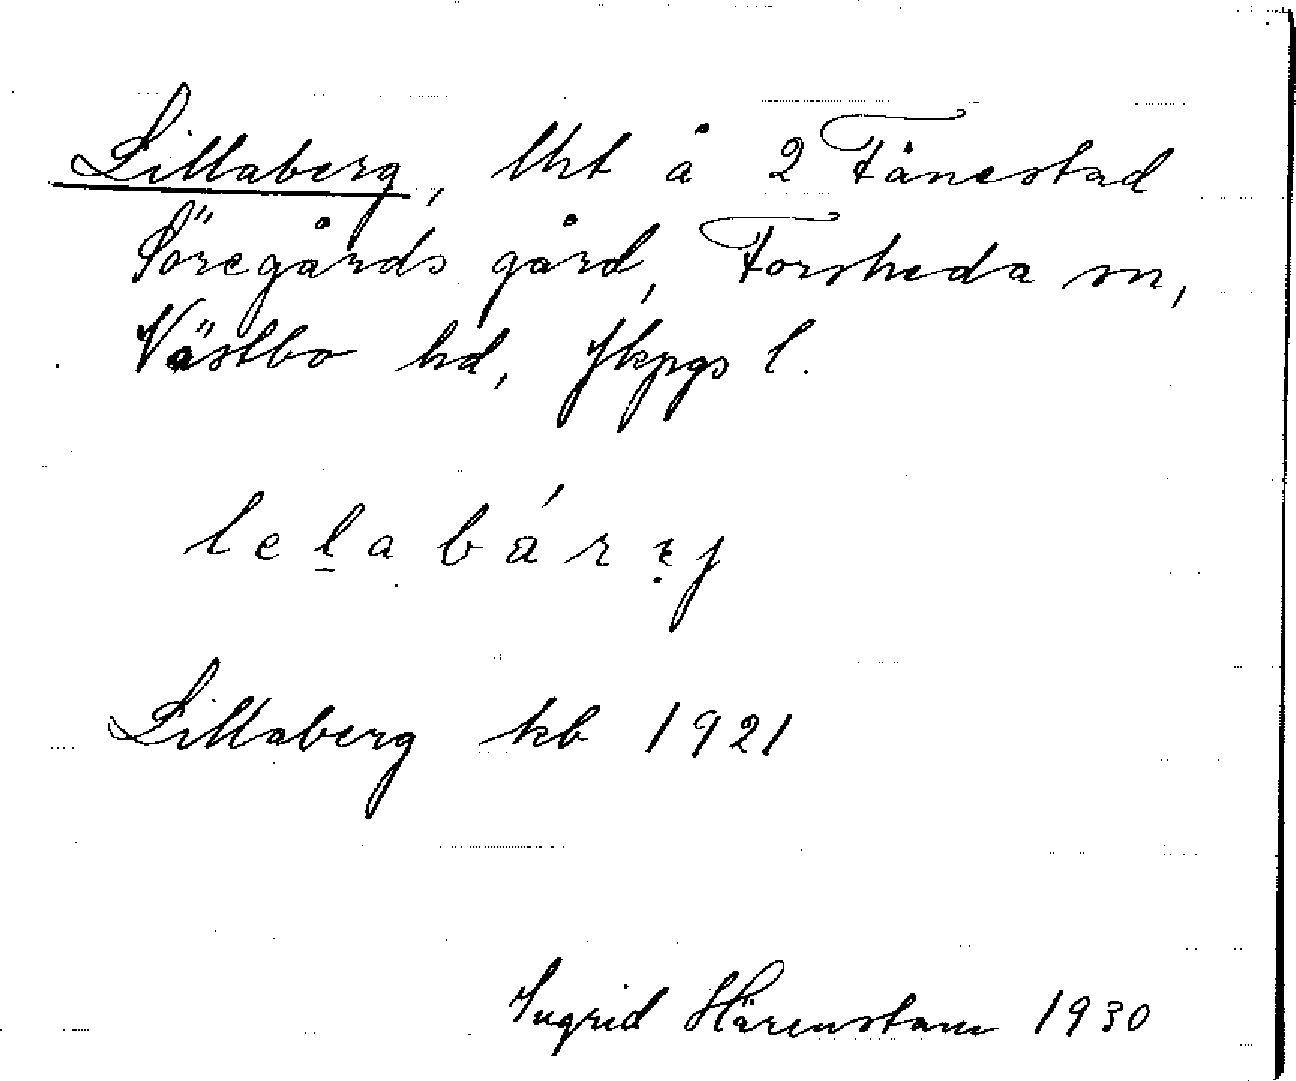 Lillaberg, lht å 2 Fånestad
Söregårds gård, Forsheda sn,
Västbo hd, Jkpgs l.
lelabárej
Lillaberg kb 1921
Ingrid Härenstam 1930